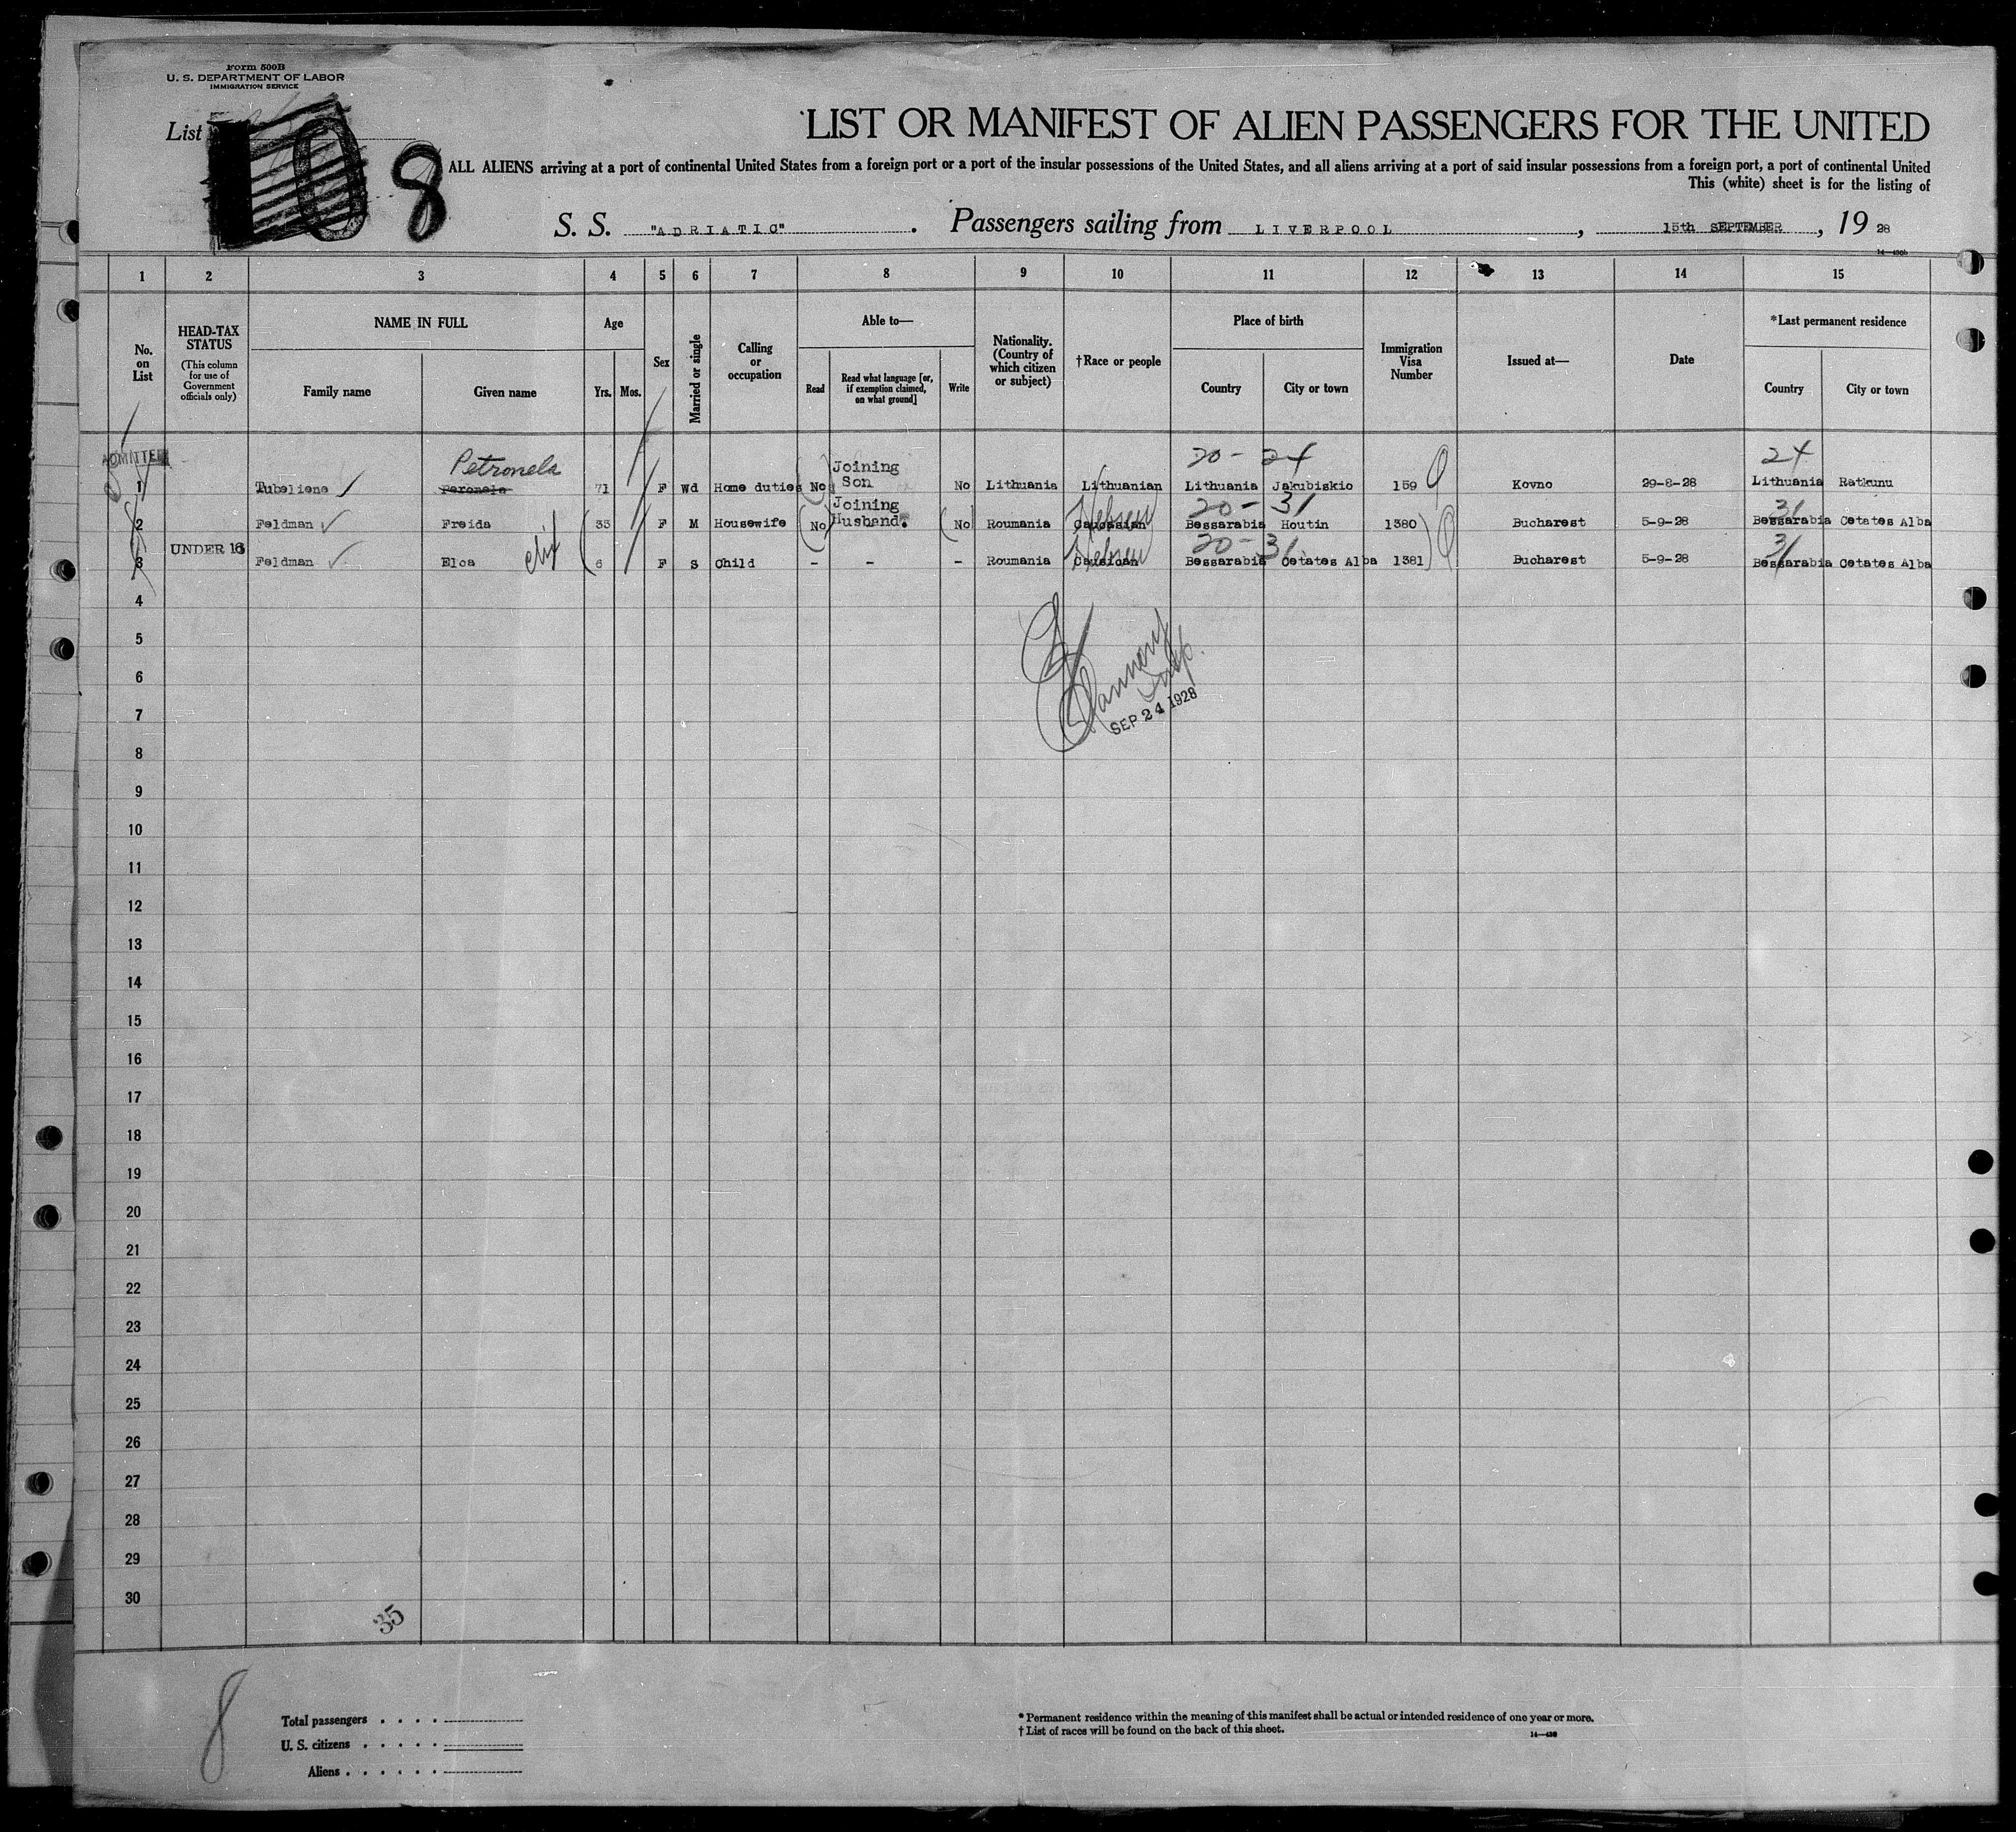 Form 500B
U. S. DEPARTMENT OF LABOR
IMMIGRATION SERVICE
List
8
LIST OR MANIFEST OF ALIEN PASSENGERS FOR THE UNITED
ALL ALIENS arriving at a port of continental United States from a foreign port or a port of the insular possessions of the United States, and all aliens arriving at a port of said insular possessions from a foreign port, a port of continental United
This (white) sheet is for the listing of
S. S. "ADRIATIC". Passengers sailing from LIVERPOOL, 15th SEPTEMBER, 19 28
14—430b
1 2 3 4 5 6 7 8 9 10 11 12 13 14 15
No. on List
HEAD-TAX STATUS
(This column for use of Government officials only)
NAME IN FULL
Family name
Given name
Age
Yrs. Mos.
Sex
Married or single
Calling or occupation
Able to—
Read
Read what language [or, if exemption claimed, on what ground]
Write
Nationality. (Country of which citizen or subject)
†Race or people
Place of birth
Country
City or town
Immigration Visa Number
Issued at—
Date
*Last permanent residence
Country
City or town
ADMITTED
Petronela
20 - 24
24
1 Tubeliene Peronela 71 F Wd Home duties No Joining Son No Lithuania Lithuanian Lithuania Jakubiskio 159 Kovno 29-8-28 Lithuania Ratkunu
20 - 31
31
2 Feldman Freida 33 F M Housewife No Joining Husband. No Roumania Caucasian Hebrew Bessarabia Houtin 1380 Bucharest 5-9-28 Bessarabia Cetates Alba
UNDER 16
20 - 31
31
3 Feldman Elca 6 F S Child - - - Roumania Causican Hebrew Bessarabia Cetates Alba 1381 Bucharest 5-9-28 Bessarabia Cetates Alba
4
5
6
7
SEP 24 1928
8
9
10
11
12
13
14
15
16
17
18
19
20
21
22
23
24
25
26
27
28
29
30
35
8
Total passengers . . . .
U. S. citizens . . . . .
Aliens . . . . . .
* Permanent residence within the meaning of this manifest shall be actual or intended residence of one year or more.
† List of races will be found on the back of this sheet.
14—430